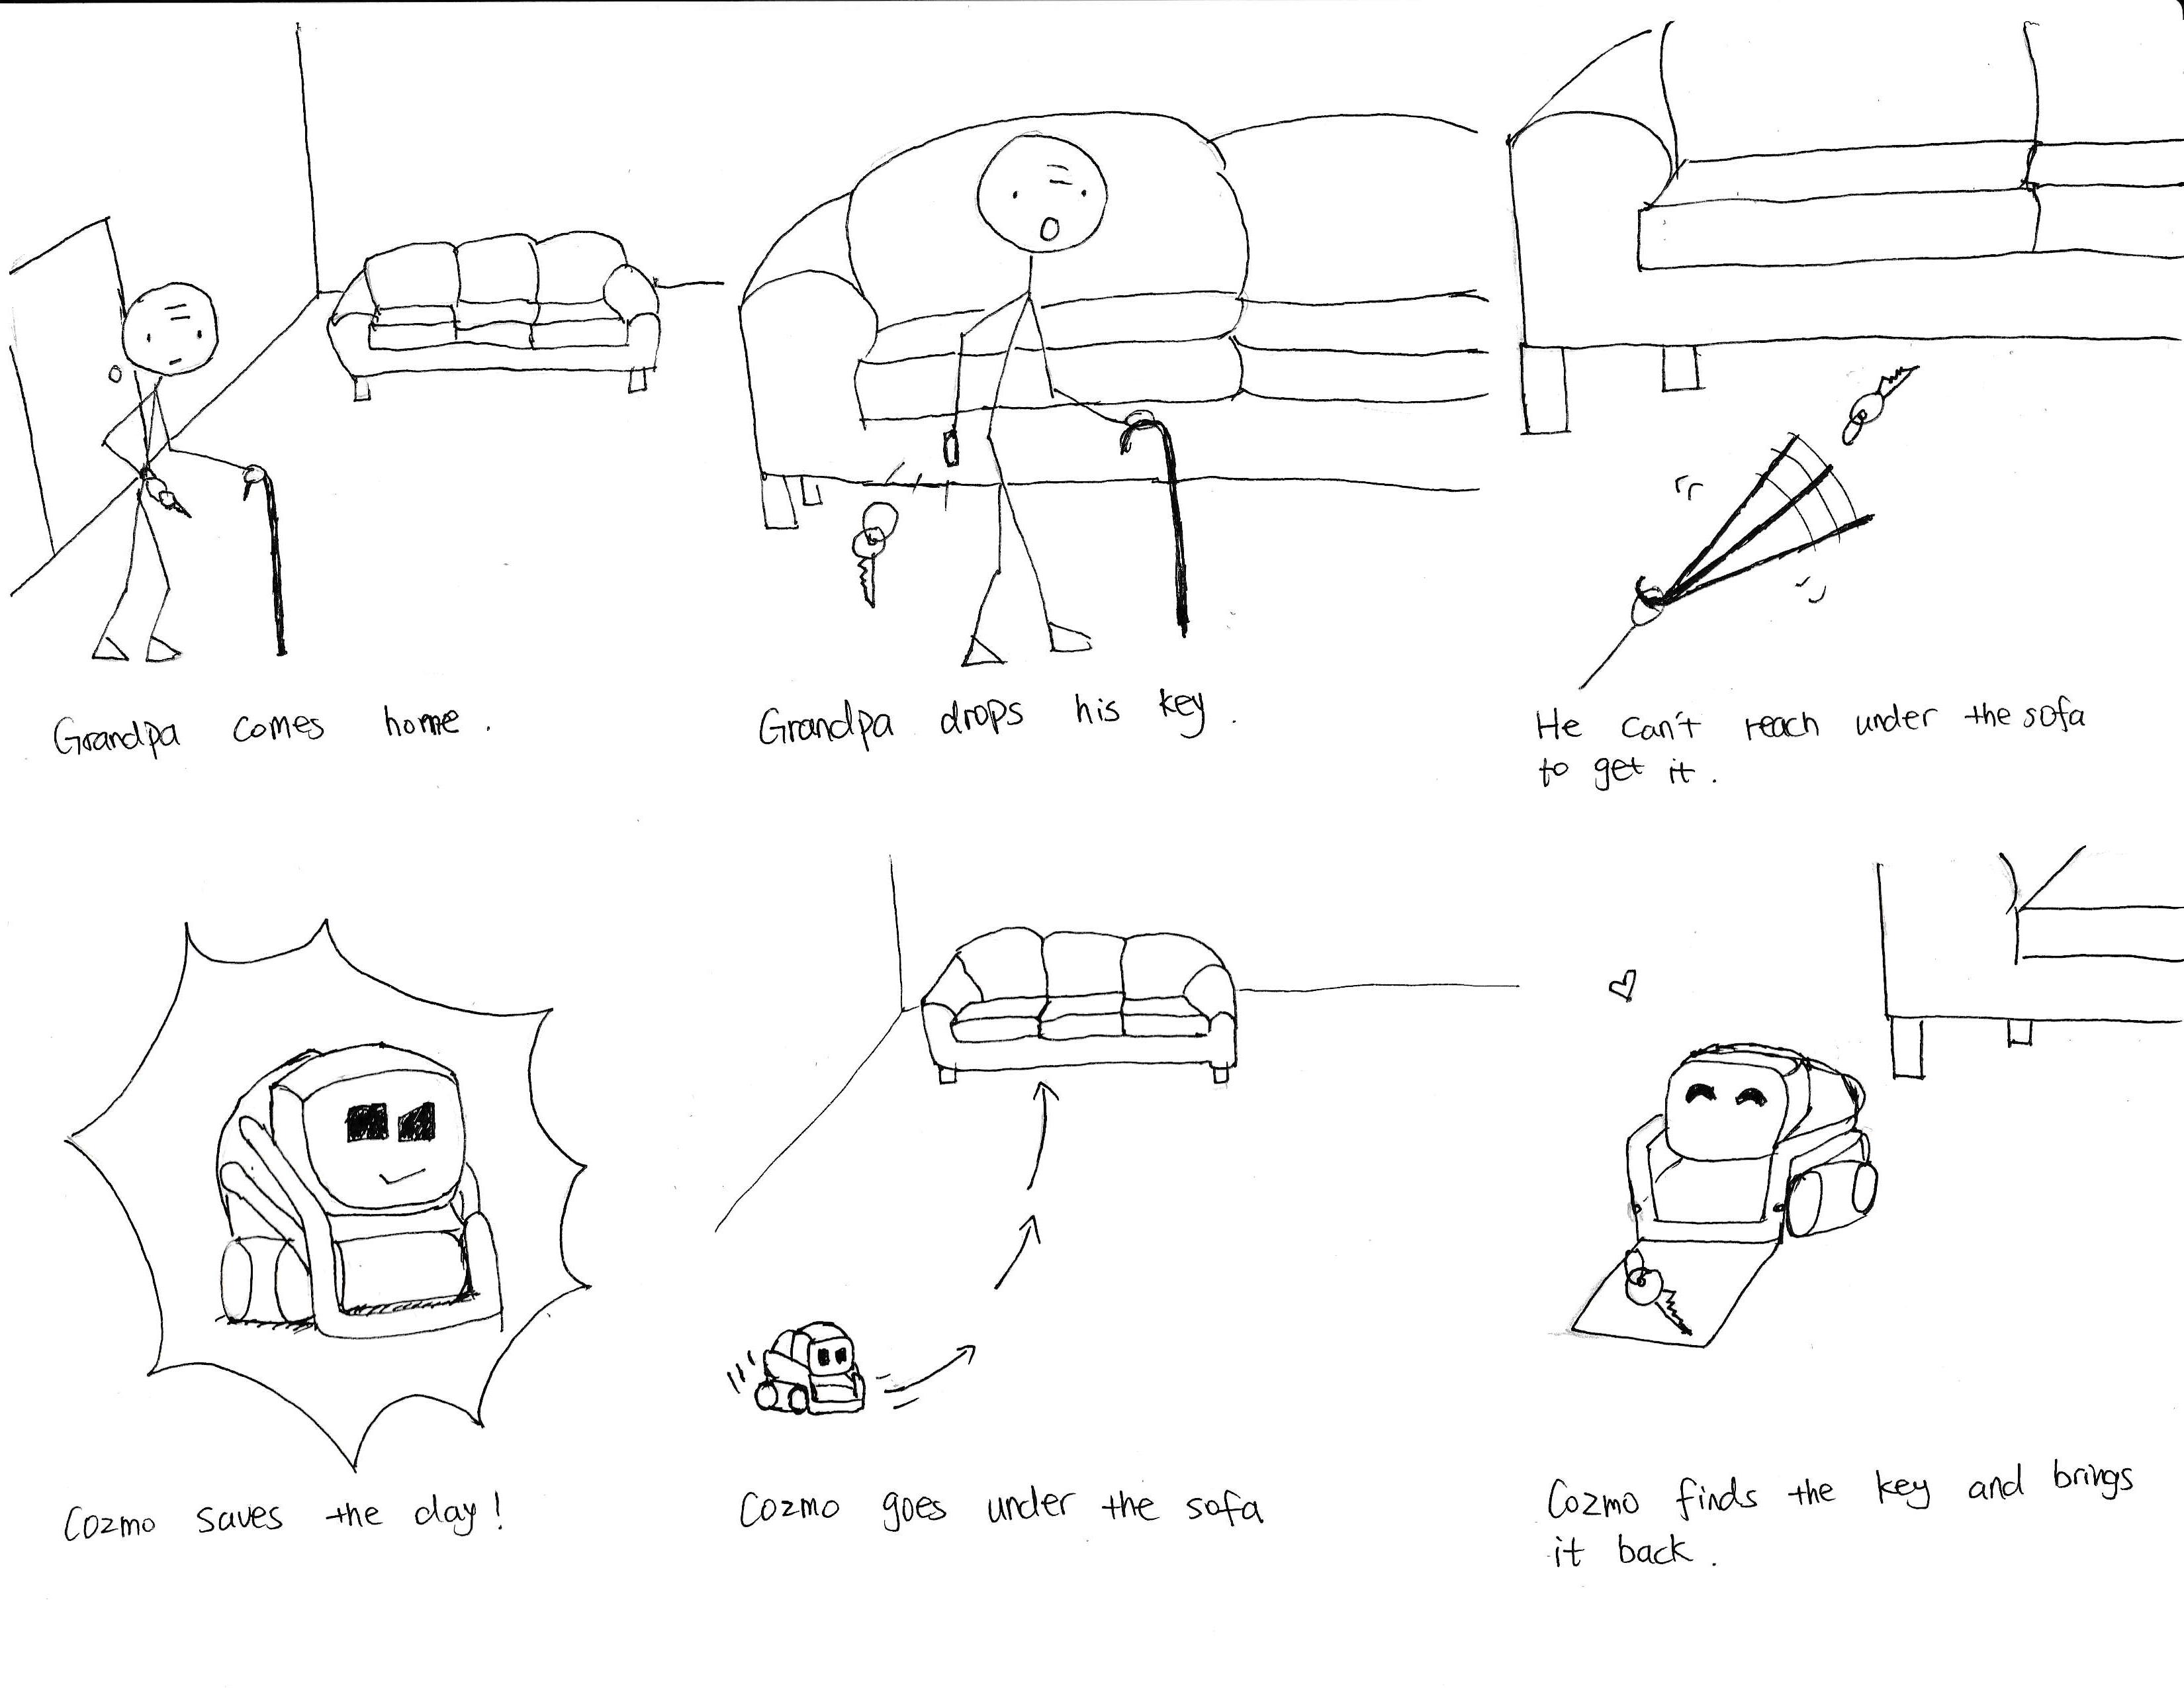 Grandpa comes home.
Grandpa drops his key.
He can't reach under the sofa
to get it.
Cozmo saves the day!
Cozmo goes under the sofa
Cozmo finds the key and brings
it back.